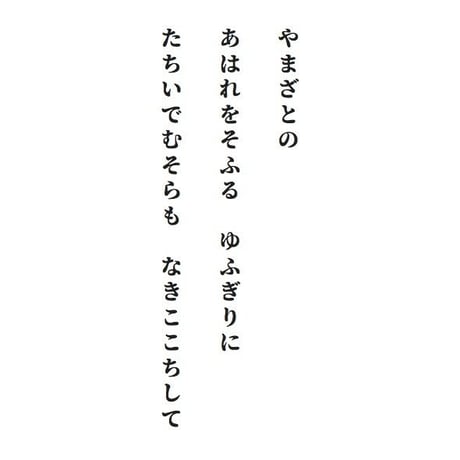 やまざとの
あはれをそふる　ゆふぎりに
たちいでむそらも　なきここちして